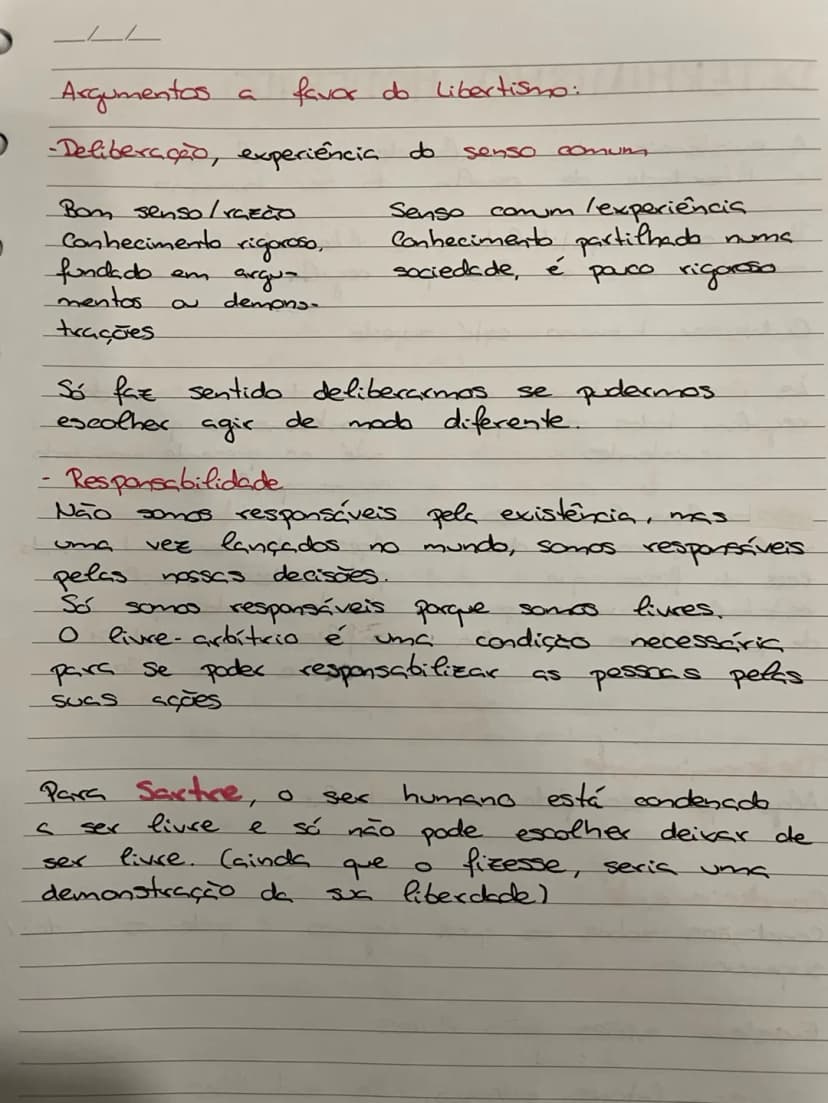 __/__/__
Argumentos a favor do Libertismo:
-Deliberação, experiência do senso comum
Bom senso/razão
Conhecimento rigoroso,
fundado em argu-
mentos ou demons-
trações
Senso comum/experiência
Conhecimento partilhado numa
sociedade, é pouco rigoroso
Só faz sentido deliberarmos se pudermos
escolher agir de modo diferente.
- Responsabilidade
Não somos responsáveis pela existência, mas
uma vez lançados no mundo, somos responsáveis
pelas nossas decisões.
Só somos responsáveis porque somos livres.
O livre-arbítrio é uma condição necessária
para se poder responsabilizar as pessoas pelas
suas ações
Para Sartre, o ser humano está condenado
a ser livre e só não pode escolher deixar de
ser livre. (ainda que o fizesse, seria uma
demonstração da sua liberdade)